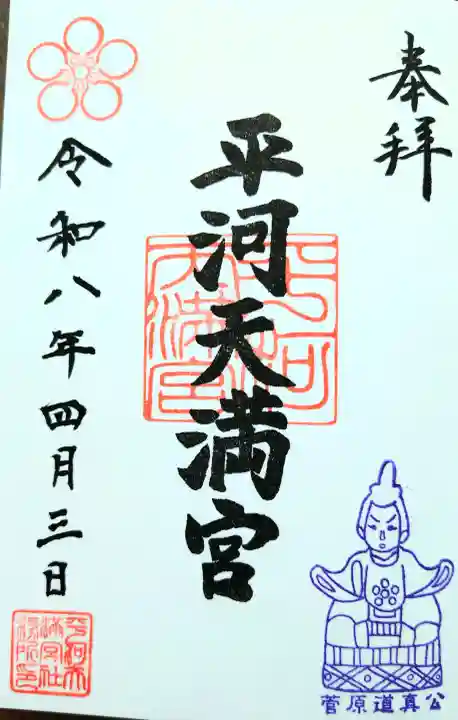 奉拝
平河天満宮
平河天満宮
令和八年四月三日
菅原道真公